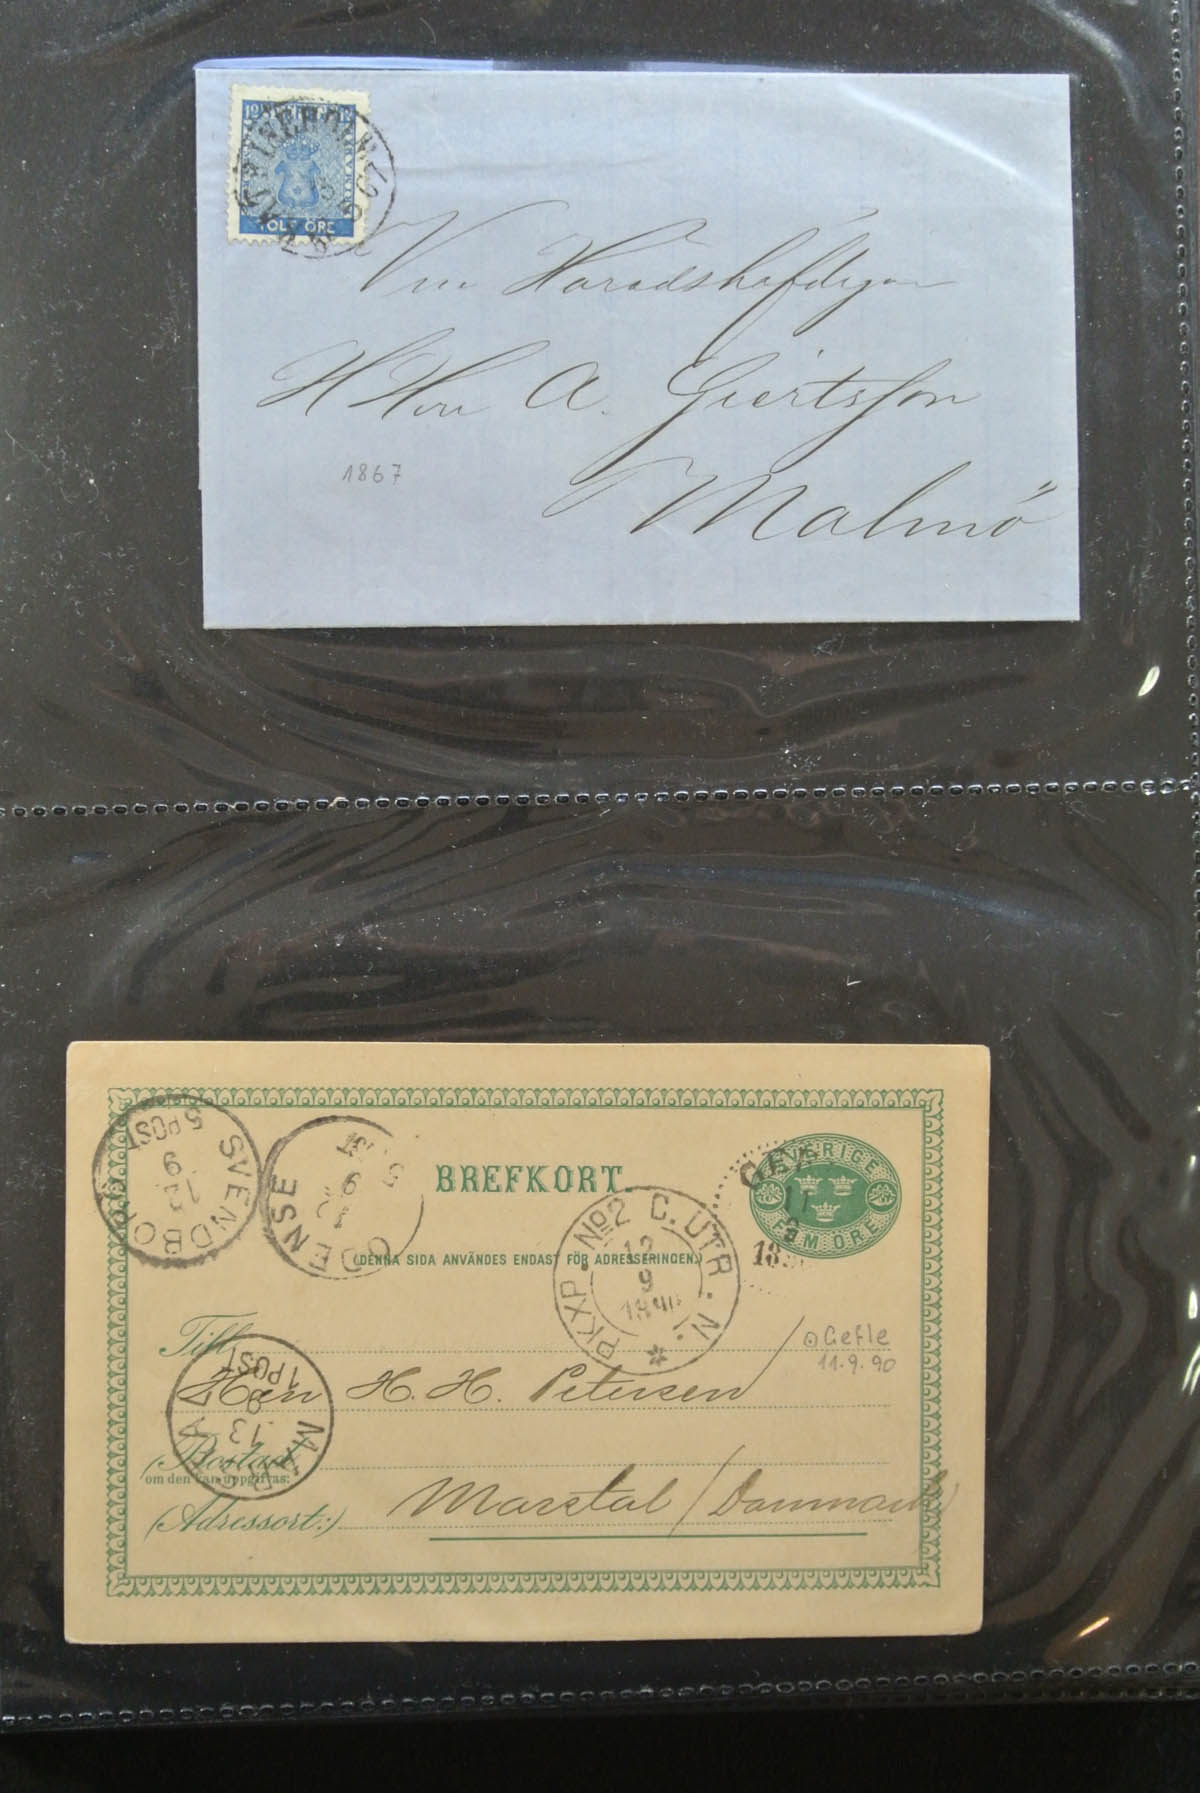 12 SVERIGE 12
TOLF ÖRE
KATRINEHOLM
1867
H Herr A.
Malmö
1867
SVENDBORG
12 9
5 POST
ODENSE
9
5 POST
BREFKORT.
(DENNA SIDA ANVÄNDES ENDAST FÖR ADRESSERINGEN.)
PKXP. No2 C. UTR. N.
12
9
1890
SVERIGE
FEM ÖRE
GEFLE
11
9
Till
Gefle
11.9.90
Herr H. H. Petersen
MARSTAL
13
1 POST
(Bostad
om den kan uppgifvas:
(Adressort:)
Marstal / Danmark